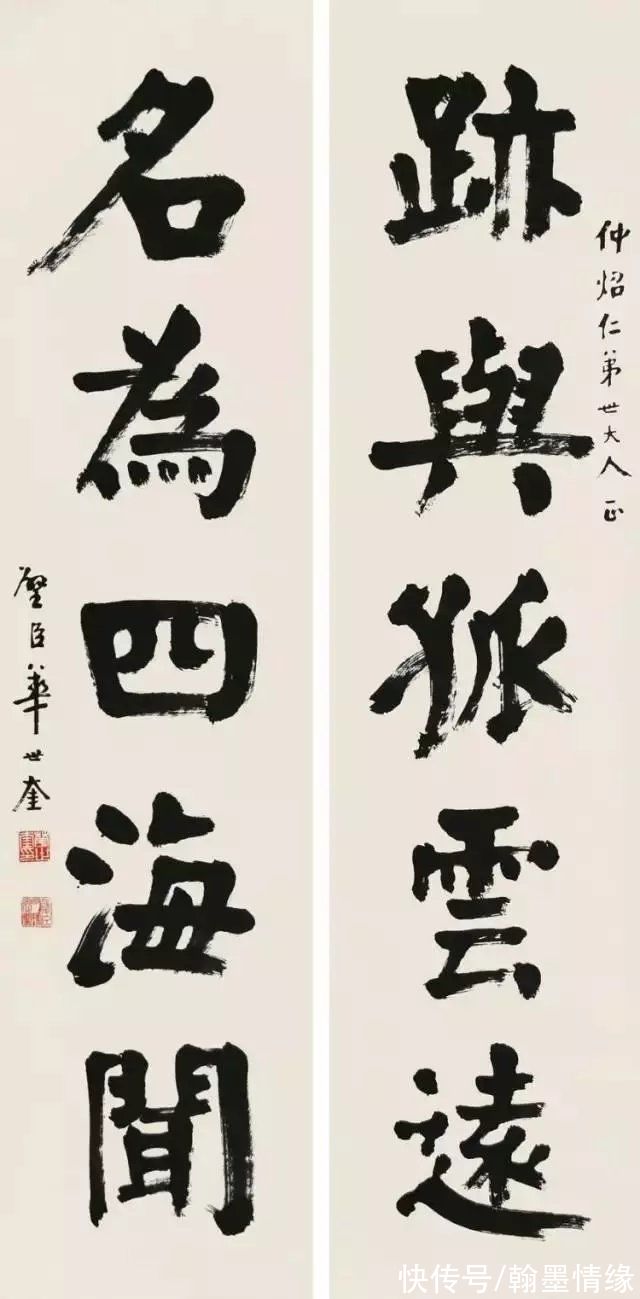 仲炤仁弟世大人正
跡與孤雲遠
名為四海聞
璧臣華世奎
快传号/翰墨情缘